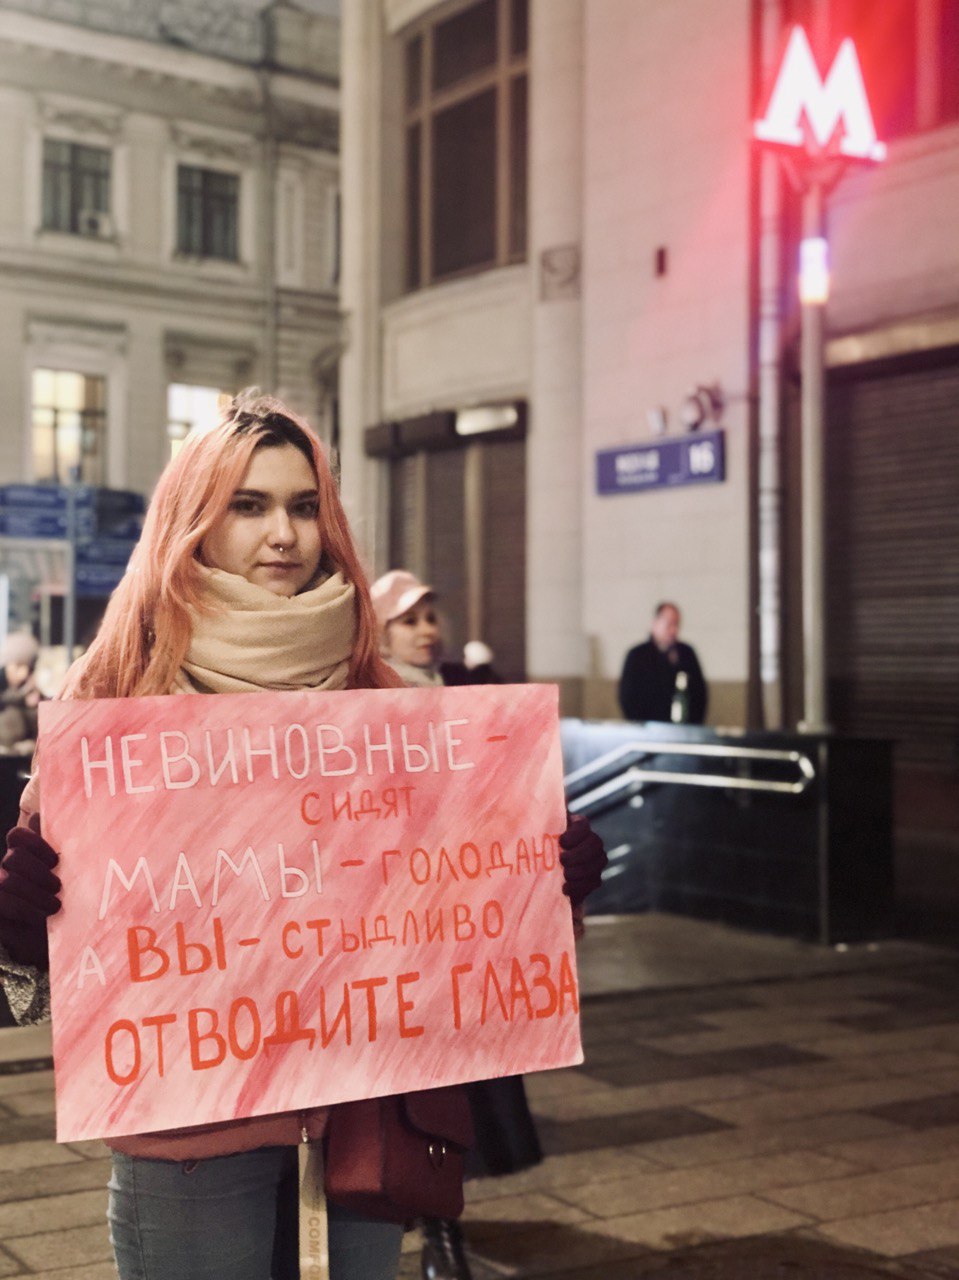 М
16
НЕВИНОВНЫЕ -
СИДЯТ
МАМЫ - ГОЛОДАЮТ
А ВЫ - СТЫДЛИВО
ОТВОДИТЕ ГЛАЗА
COMF